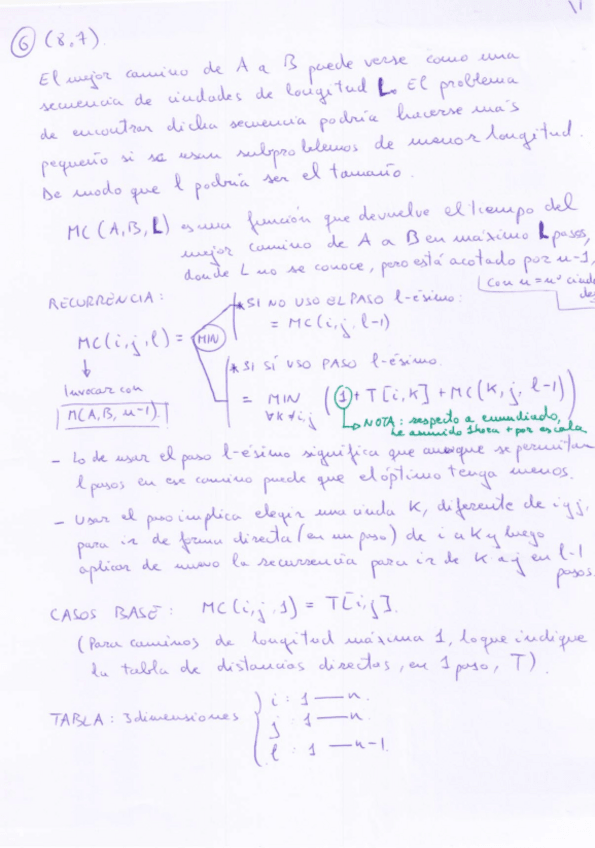 6 (8,7).
El mejor camino de A a B puede verse como una
secuencia de ciudades de longitud L. El problema
de encontrar dicha secuencia podría hacerse más
pequeño si se usan subproblemas de menor longitud.
De modo que l podría ser el tamaño.
MC(A,B,L) es una función que devuelve el tiempo del
mejor camino de A a B en máximo L pasos,
donde L no se conoce, pero está acotado por n-1,
con n = nº ciuda
RECURRENCIA:
* SI NO USO EL PASO l-ésimo:
= MC(i,j,l-1)
MC(i,j,l) = MIN
* SI SÍ USO PASO l-ésimo.
= MIN (1 + T[i,K] + MC(K,j,l-1))
∀K≠i,j
Invocar con
M(A,B,n-1).
NOTA: respecto a enunciado,
he asumido 1hora + por escala
- Lo de usar el paso l-ésimo significa que aunque se permitan
l pasos en ese camino puede que el óptimo tenga menos.
- Usar el paso implica elegir una ciuda K, diferente de i y j,
para ir de forma directa (en un paso) de i a K y luego
aplicar de nuevo la recurrencia para ir de K a j en l-1
pasos.
CASOS BASE: MC(i,j,1) = T[i,j].
(Para caminos de longitud máxima 1, lo que indique
la tabla de distancias directas, en 1 paso, T).
TABLA: 3 dimensiones
i : 1 — n.
j : 1 — n.
l : 1 — n-1.